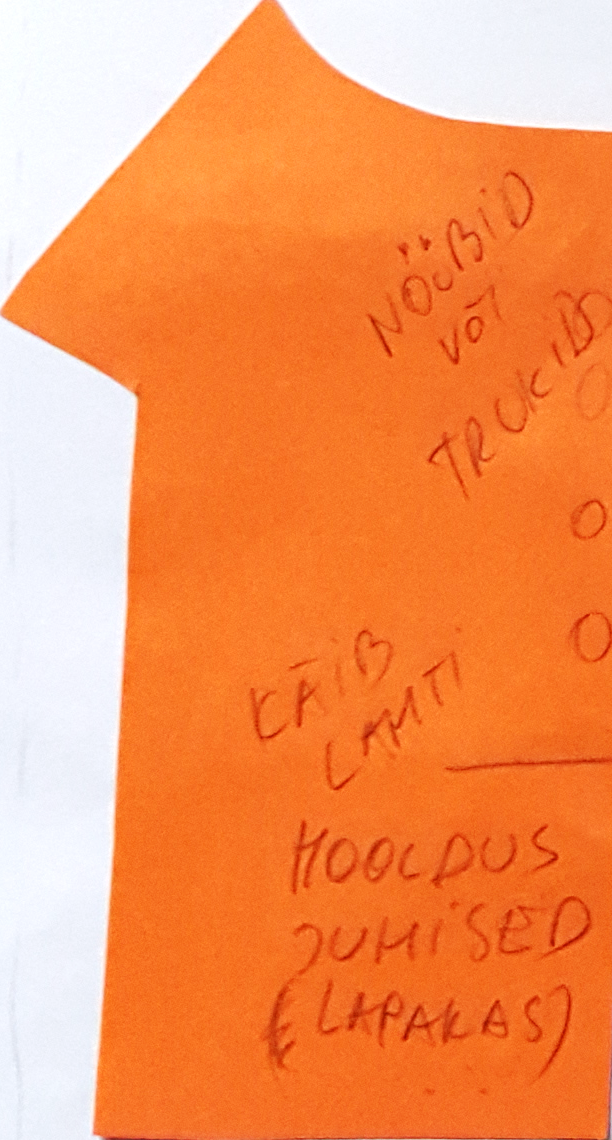 NÖÖBID
VÕI
TRUKID
KÄIB
LAHTI
HOOLDUS
JUHISED
(LAPAKAS)